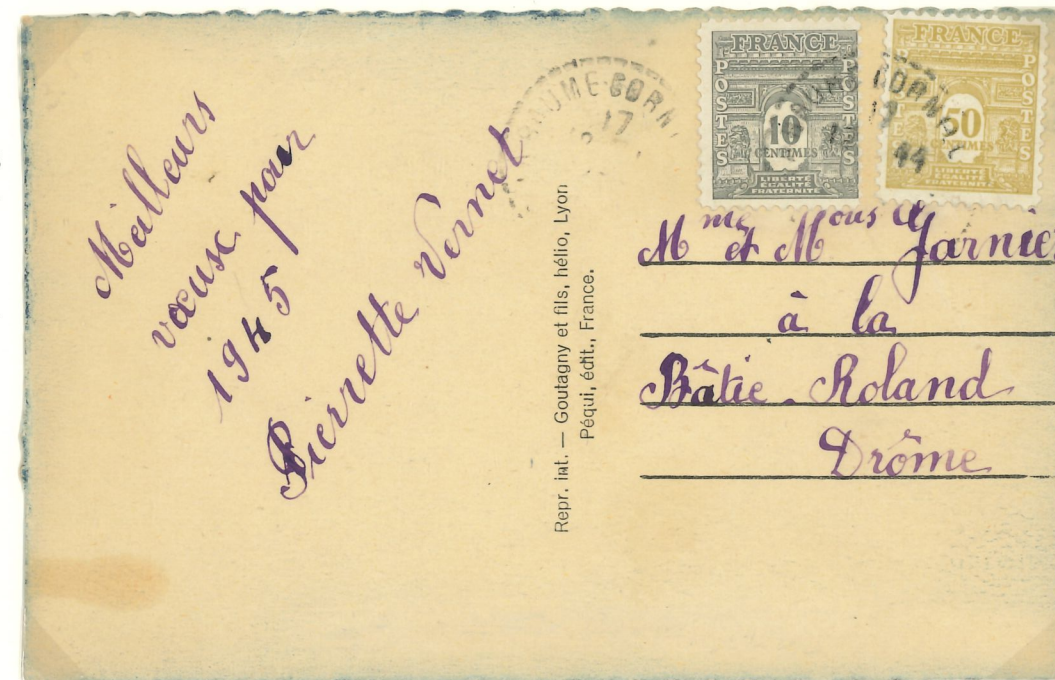 Meilleurs
vœux pour
1945
Pierrette Vernet
Repr. int. — Goutagny et fils, hélio, Lyon
Péqui, édit., France.
AUME-CORN
17
FRANCE
POSTES
POSTES
10
CENTIMES
LIBERTÉ
ÉGALITÉ
FRATERNITÉ
FRANCE
POSTES
POSTES
50
CENTIMES
LIBERTÉ
ÉGALITÉ
FRATERNITÉ
CORN
17
44
Mme et Mous Jarnie
à la
Bâtie-Roland
Drôme